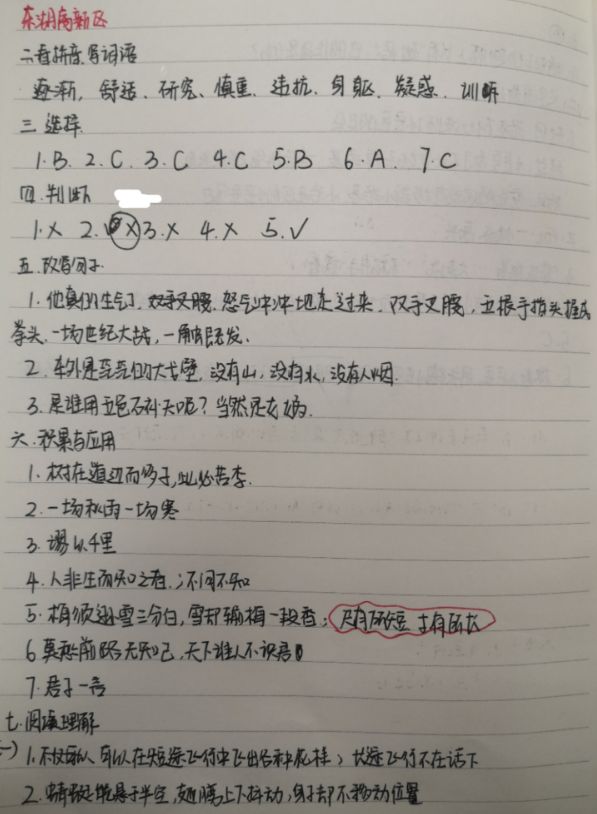 东湖高新区
二.看拼音写词语
逐渐、舒适、研究、慎重、违抗、身躯、疑惑、训斥
三.选择
1.B. 2.C. 3.C 4.C 5.B 6.A. 7.C
四.判断
1.× 2. × 3.× 4.× 5.√
五.改写句子.
1.他真的生气了, 怒气冲冲地走过来, 双手叉腰, 五根手指头握成
拳头. 一场世纪大战, 一触即发.
2.车外是茫茫的大戈壁, 没有山, 没有水, 没有人烟.
3.是谁用五色石补天呢? 当然是女娲.
六.积累与应用
1.树在道边而多子, 此必苦李.
2.一场秋雨一场寒
3.谬以千里
4.人非生而知之者; 不问不知
5.梅须逊雪三分白, 雪却输梅一段香; 尺有所短 寸有所长
6 莫愁前路无知己, 天下谁人不识君
7.君子一言
七.阅读理解
(一) 1.不仅 可以在短途飞行中飞出各种花样; 长途飞行不在话下
2. 悬于半空, 翅膀上下抖动, 身子却不移动位置